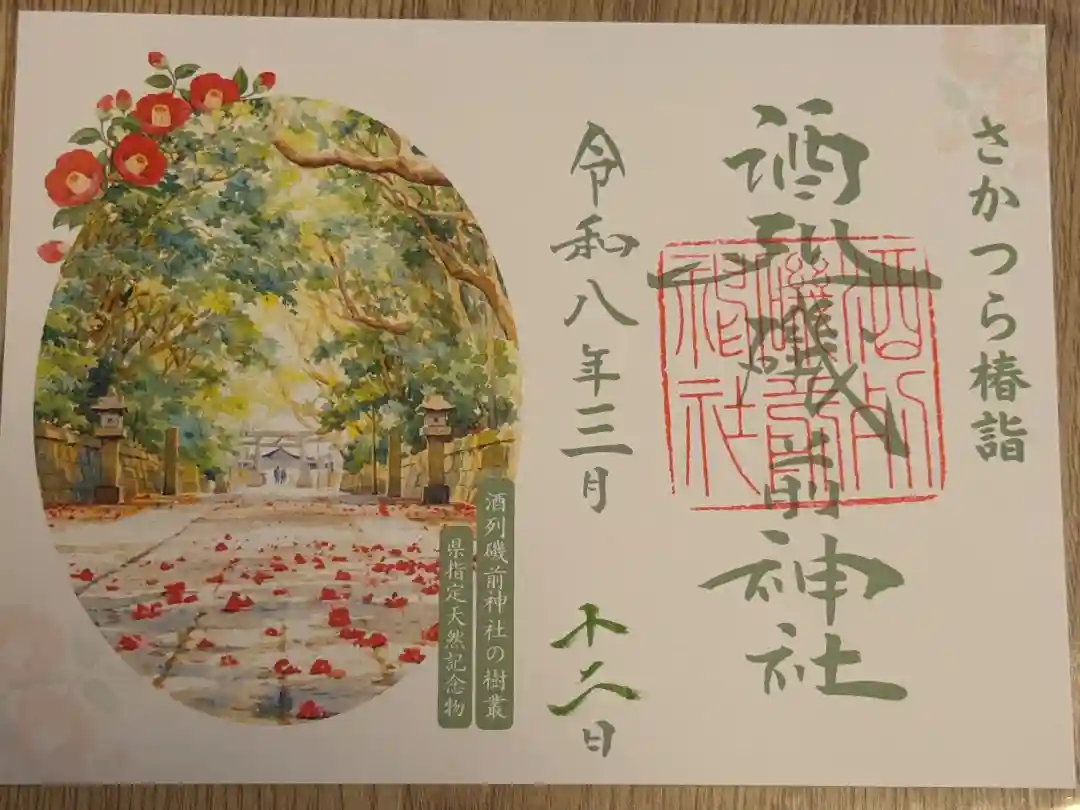 さかつら椿詣
酒列磯前神社
令和八年三月十二日
酒列磯前神社の樹叢
県指定天然記念物